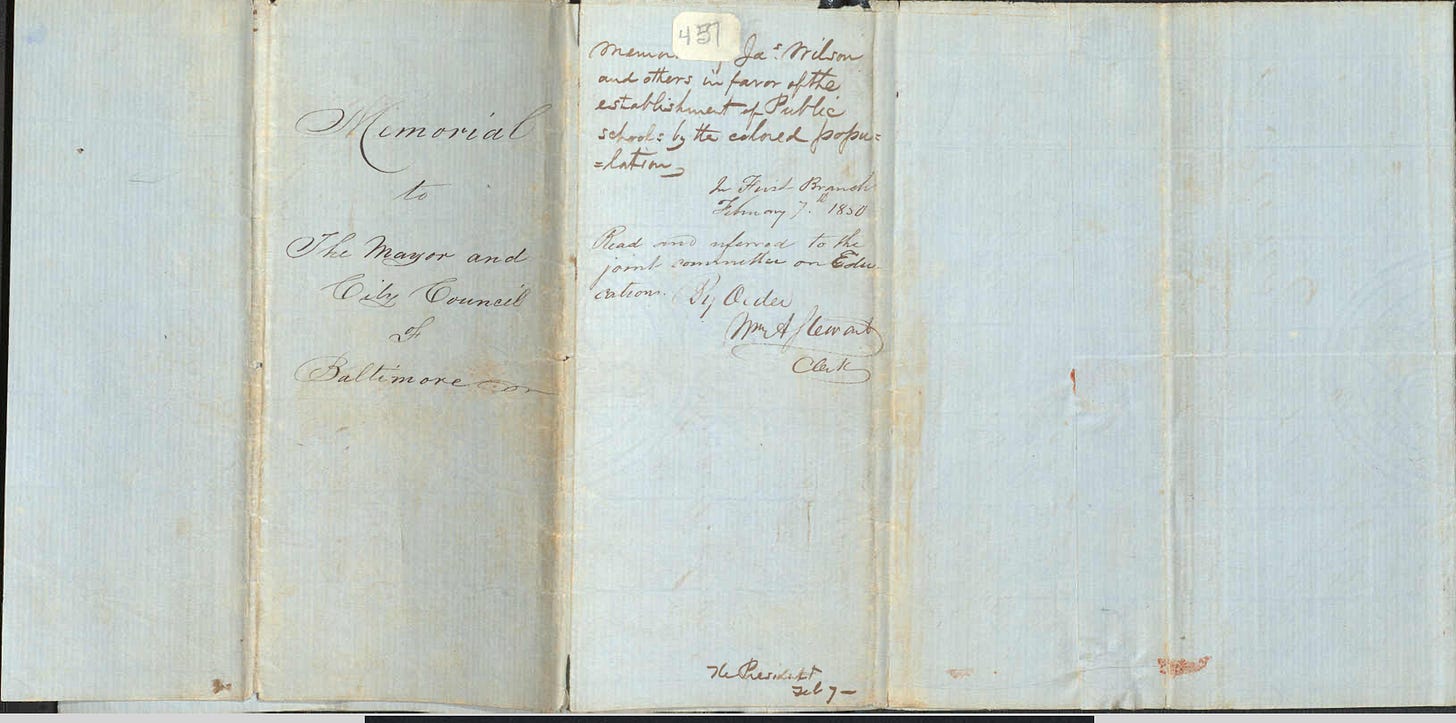 Memorial
to
The Mayor and
City Council
of
Baltimore
457
Jas. Wilson
and others in favor of the
establishment of Public
schools by the colored popu=
=lation
In First Branch
February 7.th 1850
Read and referred to the
joint committee on Edu-
cation. By Order
Wm A Stewart
Clerk
The President
Feb 7 —